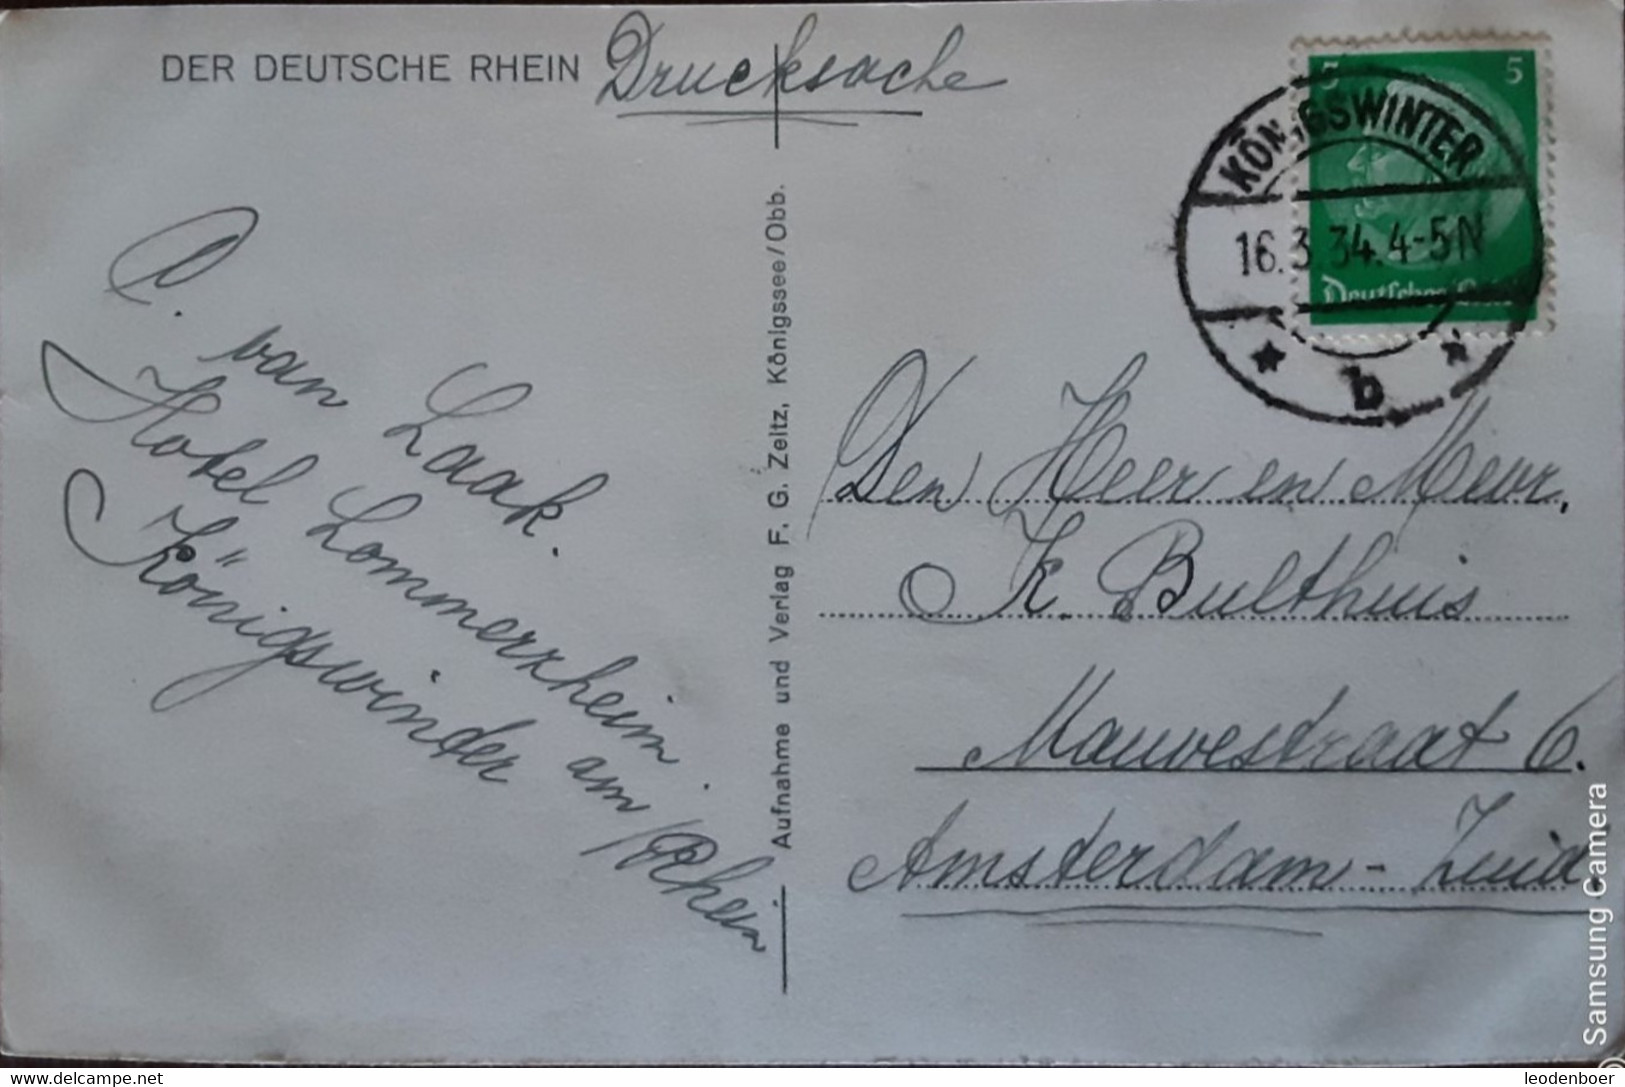 DER DEUTSCHE RHEIN
Drucksache
5 5
KÖNIGSWINTER
16.3.34.4-5N
Deutsches
b
C. van Laak.
Hotel Lommerzheim.
Königswinter am Rhein
Aufnahme und Verlag F. G. Zeitz, Königssee/Obb.
Den Heer en Mevr,
K. Bulthuis
Mauvestraat 6.
Amsterdam - Zuid.
Samsung Camera
www.delcampe.net
leodenboer